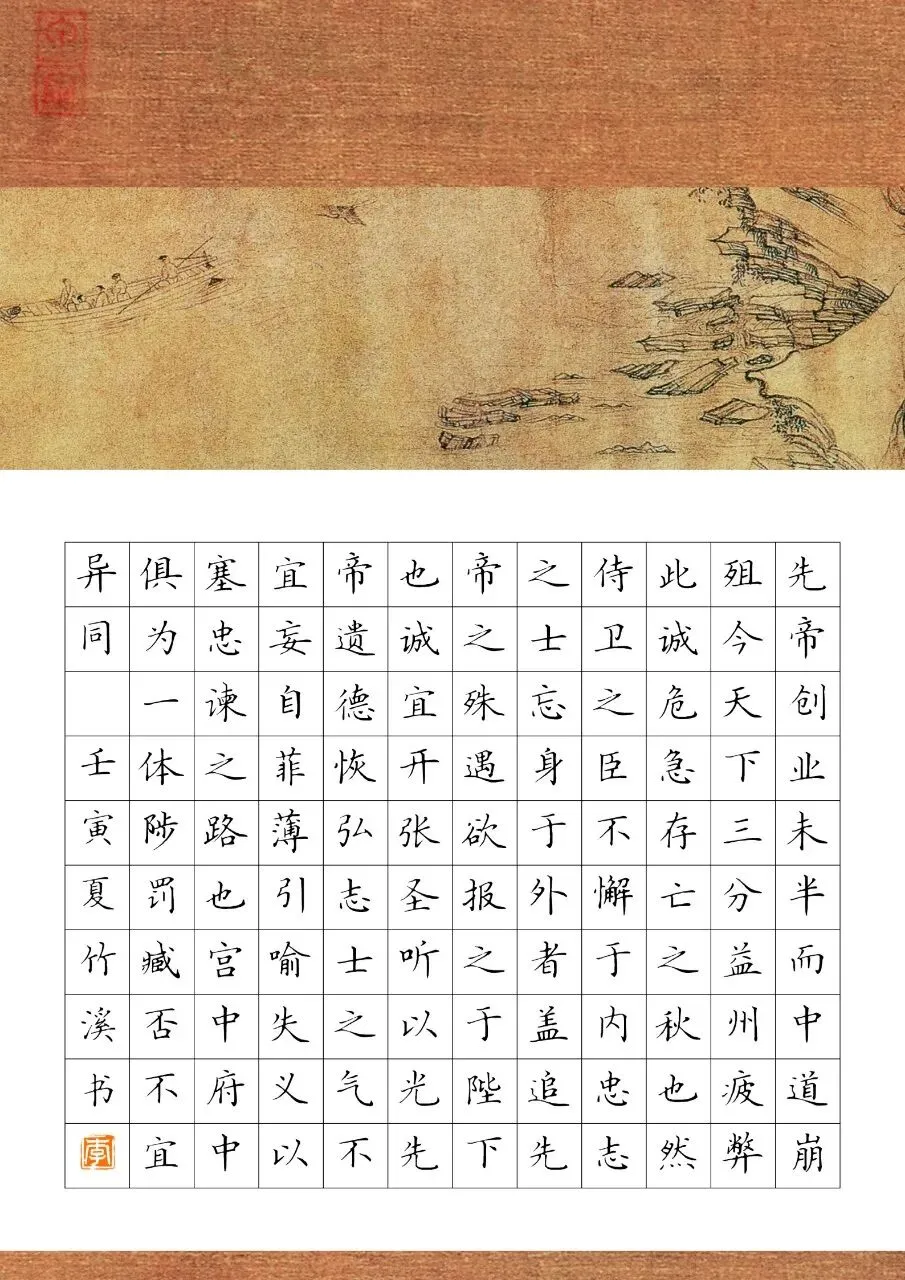 先帝创业未半而中道崩
殂今天下三分益州疲弊
此诚危急存亡之秋也然
侍卫之臣不懈于内忠志
之士忘身于外者盖追先
帝之殊遇欲报之于陛下
也诚宜开张圣听以光先
帝遗德恢弘志士之气不
宜妄自菲薄引喻失义以
塞忠谏之路也宫中府中
俱为一体陟罚臧否不宜
异同 壬寅夏竹溪书李